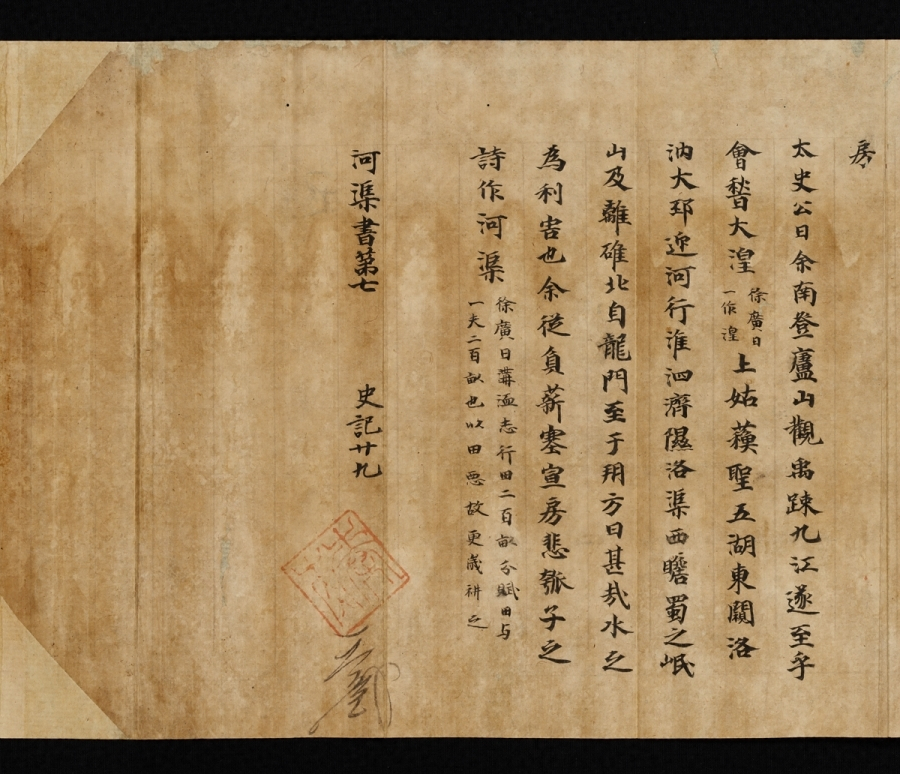 房
太史公曰余南登廬山觀禹踈九江遂至乎
會嵇大湟
徐廣曰
一作湟
上姑蘓望五湖東闚洛
汭大邳迎河行淮泗濟隰洛渠西瞻蜀之岷
山及離碓北自龍門至于朔方曰甚哉水之
為利害也余従負薪塞宣房悲瓠子之
詩作河渠
徐廣曰溝洫志行田二百畝分賦田与
一夫二百畝也以田惡故更歳耕之
河渠書第七　史記廿九